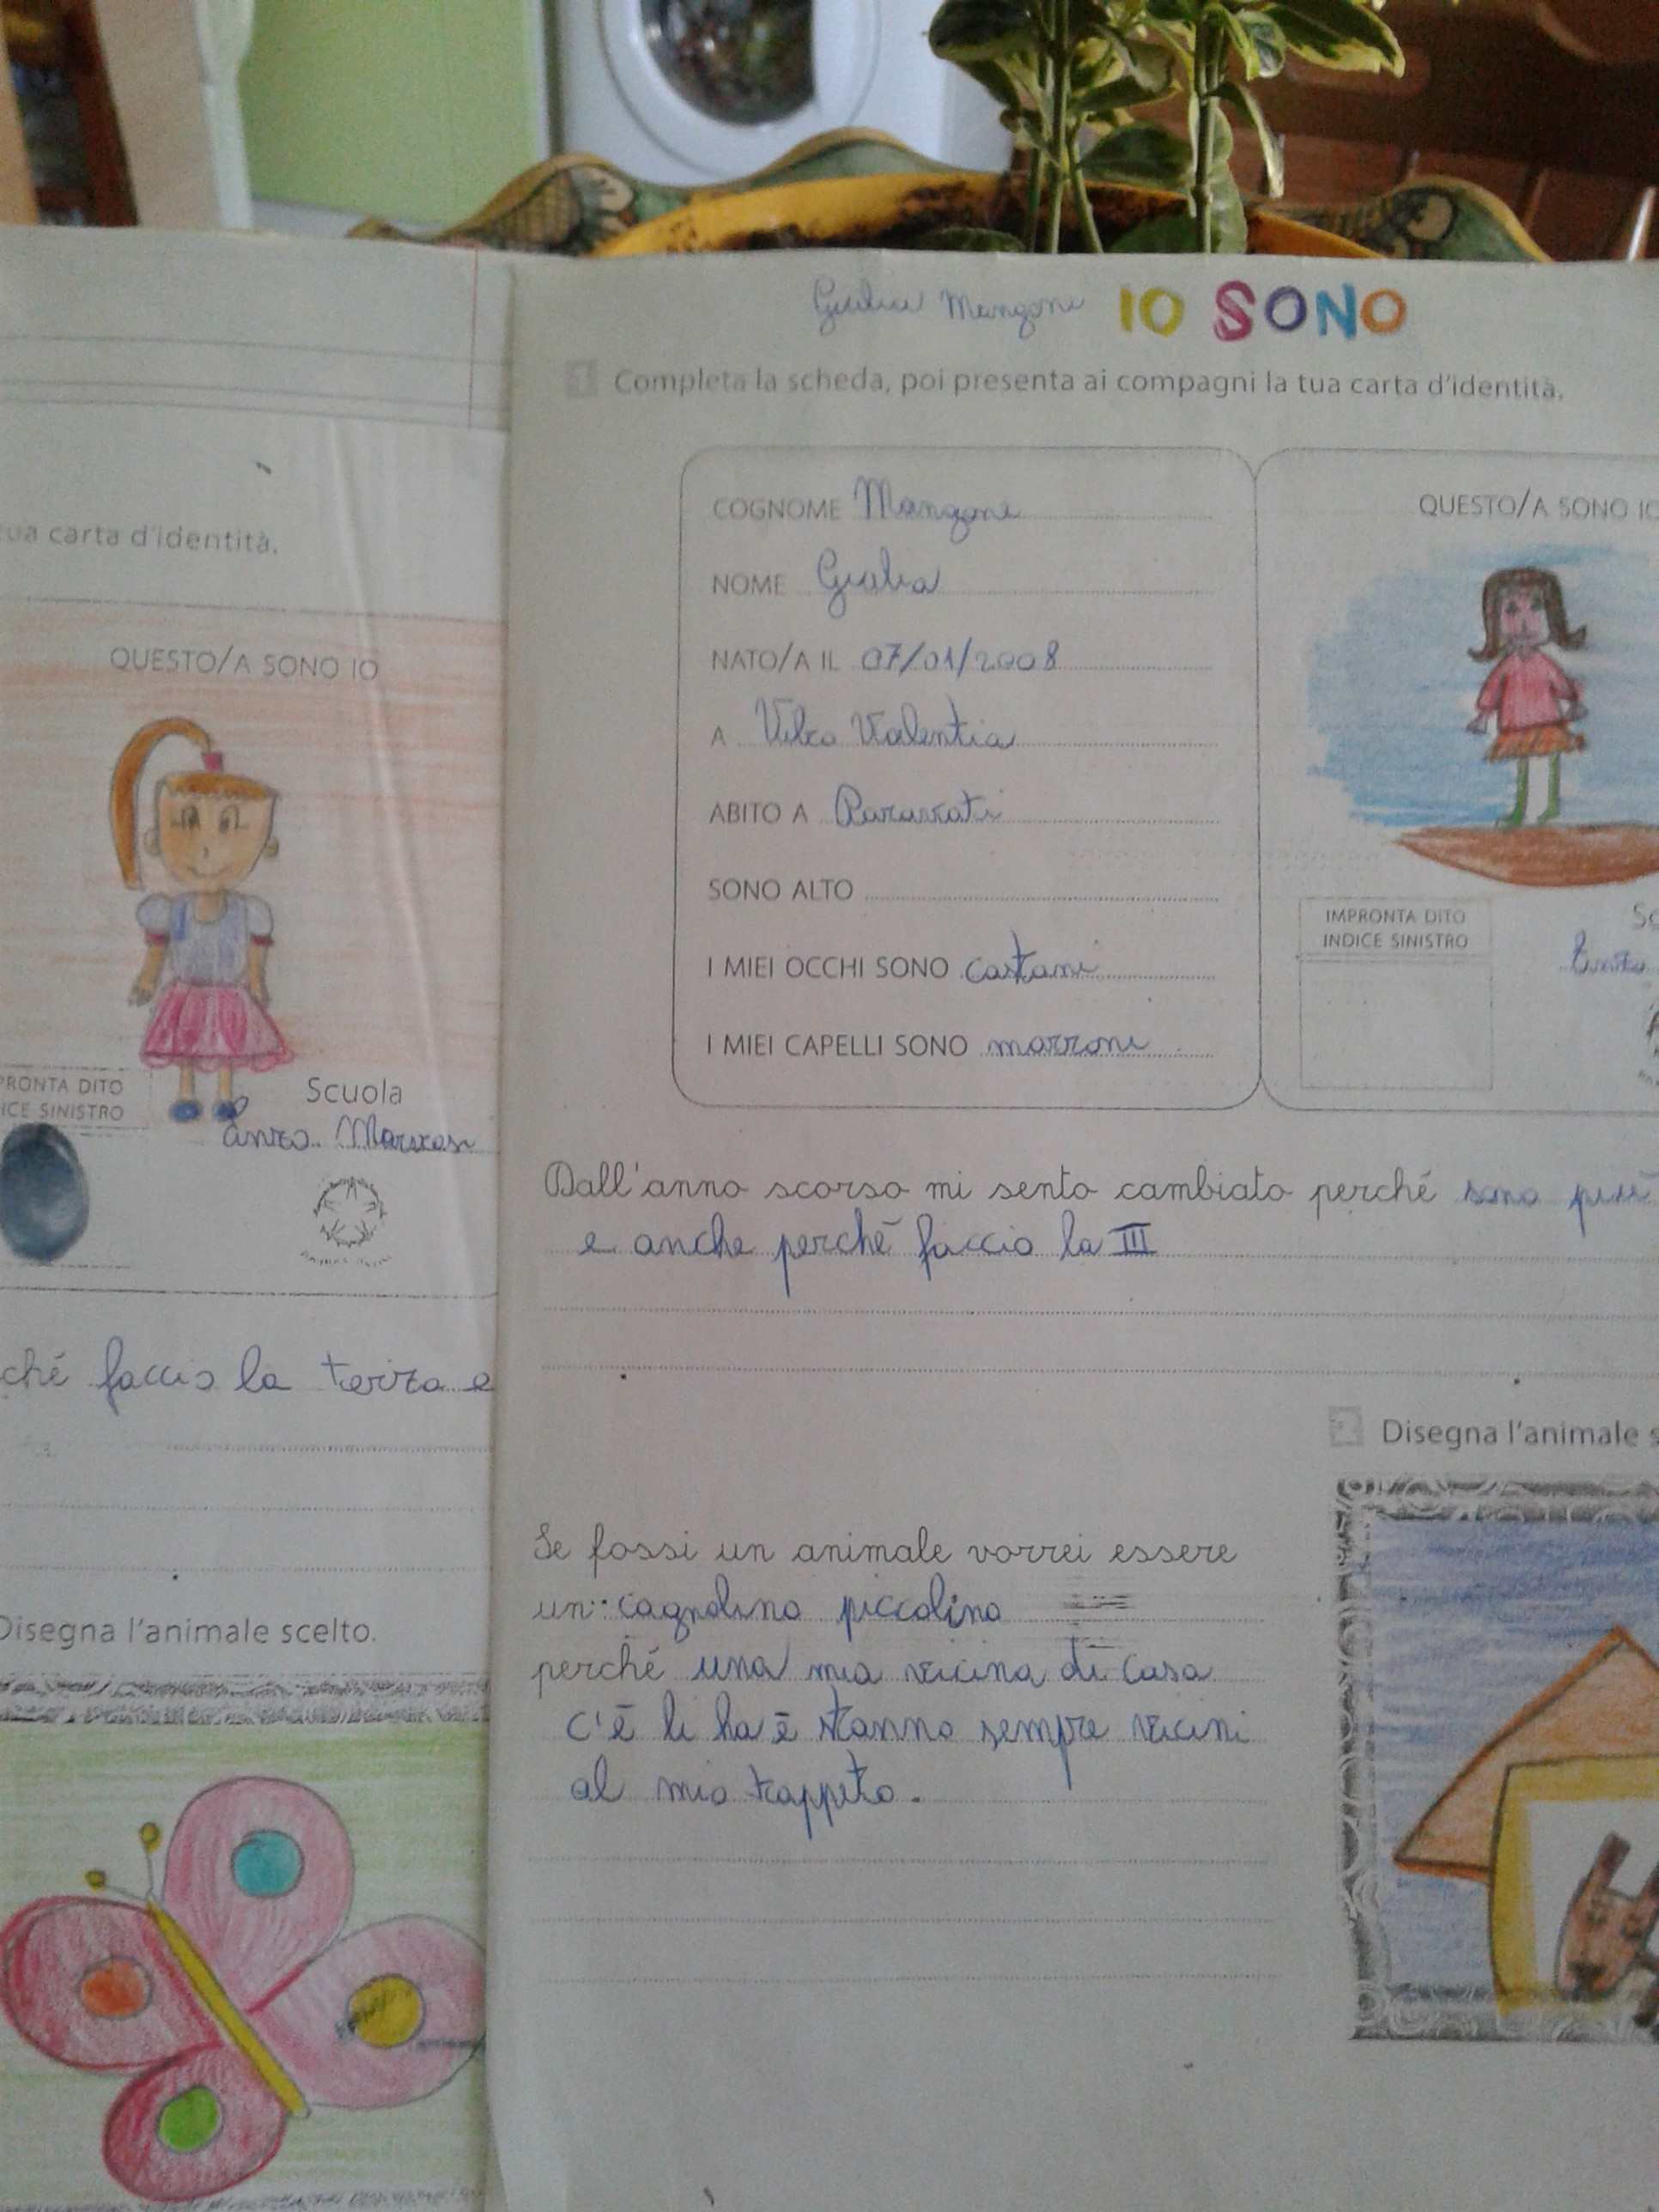 Giulia Mangone IO SONO
1 Completa la scheda, poi presenta ai compagni la tua carta d'identità.
COGNOME Mangone
NOME Giulia
NATO/A IL 07/01/2008
A Vibo Valentia
ABITO A Paravati
SONO ALTO
I MIEI OCCHI SONO castani
I MIEI CAPELLI SONO marroni
QUESTO/A SONO IO
IMPRONTA DITO
INDICE SINISTRO
Dall'anno scorso mi sento cambiato perché sono più
e anche perchè faccio la III
Se fossi un animale vorrei essere
un cagnolino piccolino
perché una mia vicina di casa
c'è li ha è stanno sempre vicini
al mio trappeto.
2 Disegna l'animale s
tua carta d'identità.
QUESTO/A SONO IO
PRONTA DITO
ICE SINISTRO
Scuola
ché faccio la terza e
Disegna l'animale scelto.